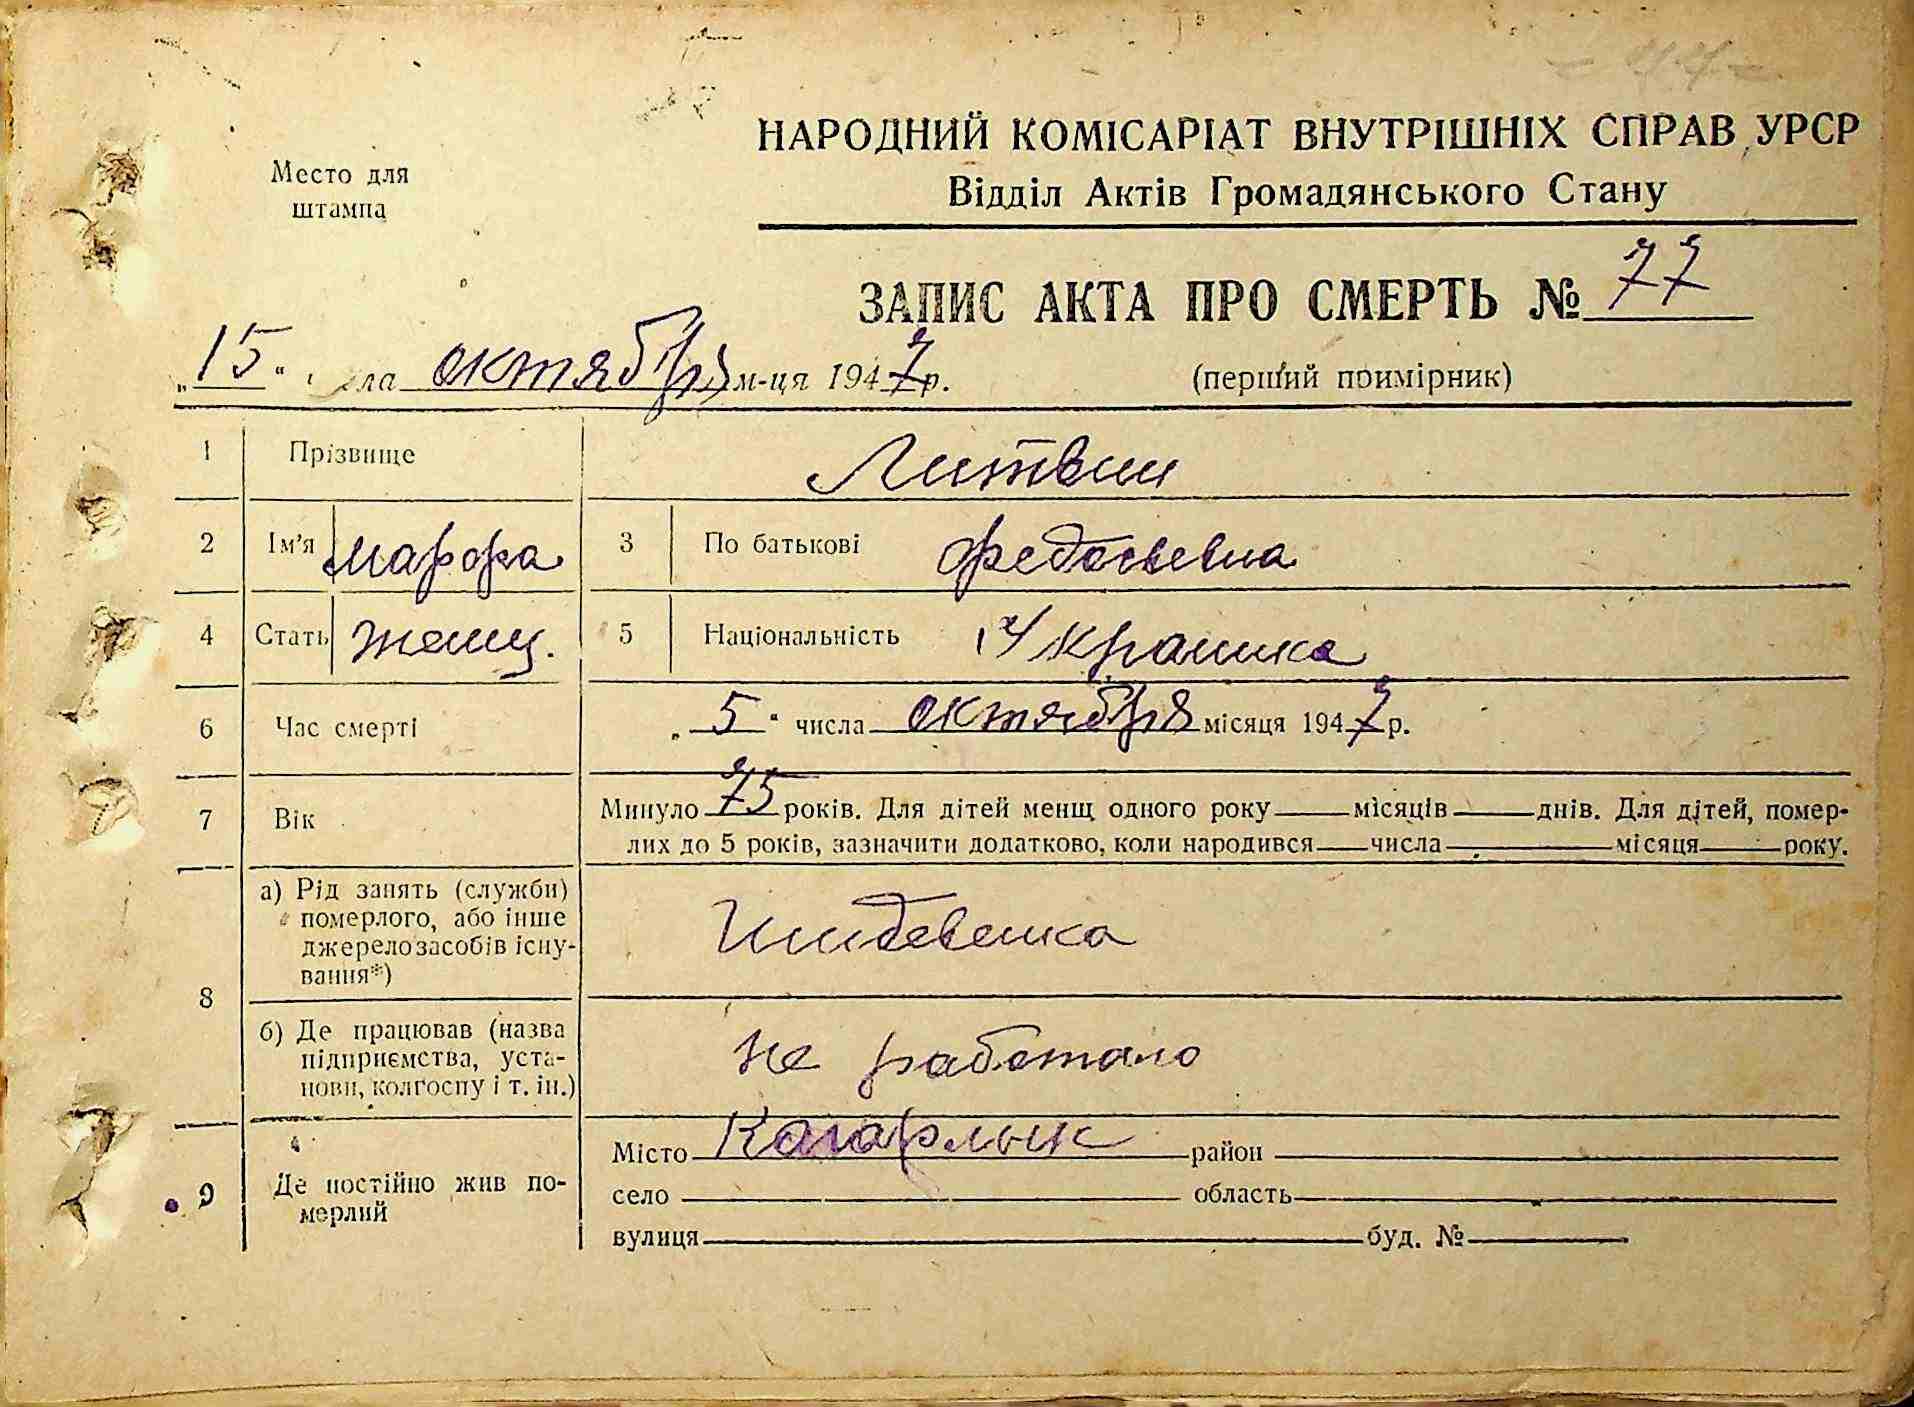 НАРОДНИЙ КОМІСАРІАТ ВНУТРІШНІХ СПРАВ УРСР
Место для штампа
Відділ Актів Громадянського Стану
ЗАПИС АКТА ПРО СМЕРТЬ № 77
„15“ числа октября м-ця 1947 р. (перший примірник)
1 Прізвище Литвин
2 Ім'я Марфа 3 По батькові Федосьевна
4 Стать женщ. 5 Національність Украинка
6 Час смерті „5“ числа октября місяця 1947 р.
7 Вік Минуло 75 років. Для дітей менш одного року місяців днів. Для дітей, помер-
лих до 5 років, зазначити додатково, коли народився числа місяця року.
8 а) Рід занять (служби)
померлого, або інше
джерело засобів існу-
вання*)
Иждевенка
б) Де працював (назва
підприємства, уста-
нови, колгоспу і т. ін.)
не работала
9 Де постійно жив по-
мерлий
Місто Кагарлык район
село область
вулиця буд. №